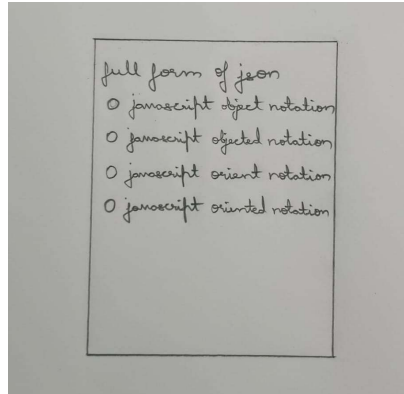 full form of json
O javascript object notation
O javascript objected notation
O javascript orient notation
O javascript oriented notation